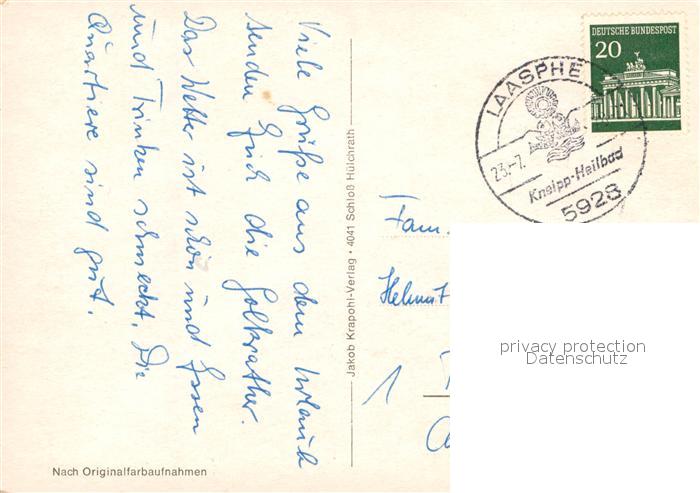 Viele Grüße aus dem Urlaub
senden Euch die Golkrather.
Das Wetter ist schön und Essen
und Trinken schmeckt. Die
Quartiere sind gut.
Nach Originalfarbaufnahmen
Jakob Krapohl-Verlag • 4041 Schloß Hülchrath
DEUTSCHE BUNDESPOST
20
LAASPHE
23.-7.
Kneipp-Heilbad
5928
Fam.
Helmut
1
privacy protection
Datenschutz